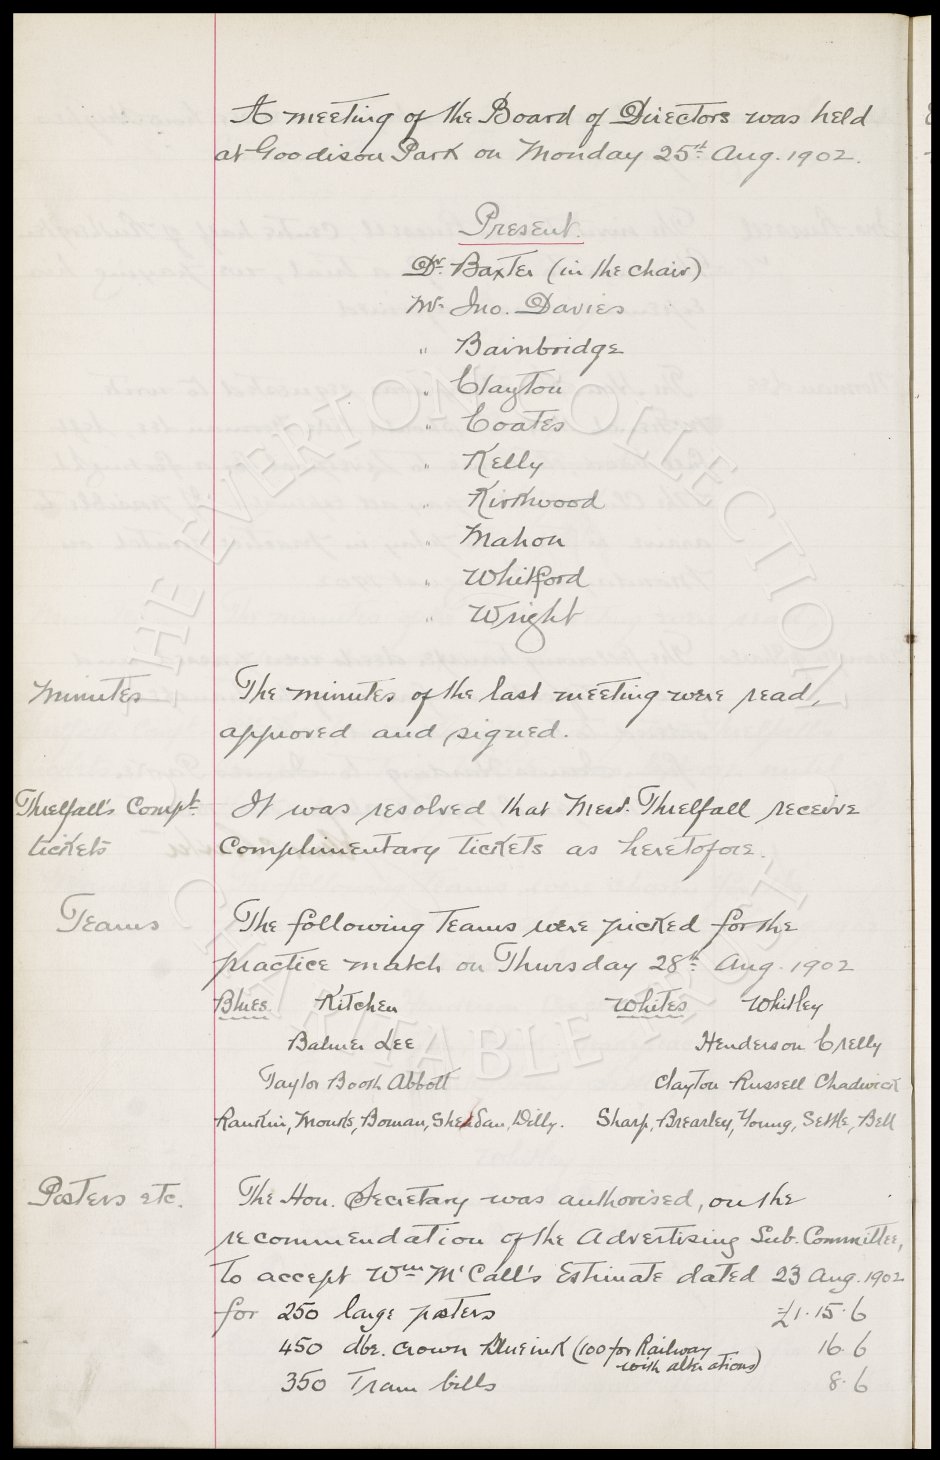 A meeting of the Board of Directors was held
at Goodison Park on Monday 25th Aug. 1902.
Present.
Dr. Baxter (in the chair)
Mr. Jno. Davies
" Bainbridge
" Clayton
" Coates
" Kelly
" Kirkwood
" Mahon
" Whitford
" Wright
Minutes The minutes of the last meeting were read,
approved and signed.
Threlfall's Compt. It was resolved that Messrs. Threlfall receive
tickets Complimentary tickets as heretofore.
Teams The following Teams were picked for the
practice match on Thursday 28th Aug. 1902
Blues. Kitchen Whites Whitley
Balmer Lee Henderson Crelly
Taylor Booth Abbott Clayton Russell Chadwick
Rankin, Bowman, Sheridan, Dilly. Sharp, Brearley, Young, Settle, Bell
Posters etc. The Hon. Secretary was authorised, on the
recommendation of the Advertising Sub. Committee,
to accept Wm McCall's Estimate dated 23 Aug. 1902
for 250 large posters £1.15.6
450 dbe. crown blue ink (100 for Railway 16.6
with alterations)
350 Tram bills 8.6
THE EVERTON COLLECTION
CHARITABLE TRUST